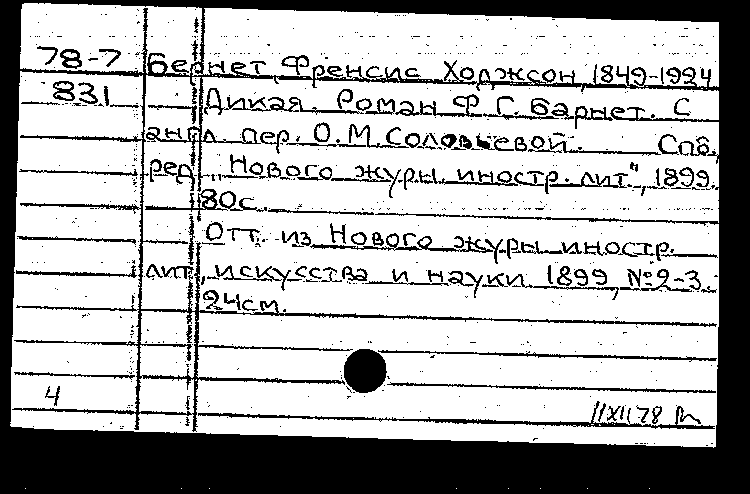 78-7 Бернет, Френсис Ходжсон, 1849-1924
831 Дикая. Роман Ф. Г. Барнет. С
англ. пер. О.М. Соловьевой. Спб.,
ред. „Нового журн. иностр. лит", 1899.
80с.
Отт. из Нового журн. иностр.
лит., искусства и науки 1899, №2-3.
24см.
4
11XII78